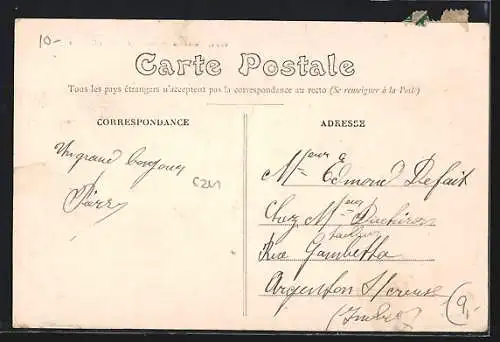 10-
Carte Postale
Tous les pays étrangers n'acceptent pas la correspondance au recto (Se renseigner à la Poste)
CORRESPONDANCE
ADRESSE
Un grand bonjour
Pierre
Mr Edmond Defait
Chez Mr
tailleur
Rue Gambetta
Argenton S/creuse
(Indre)
9,-